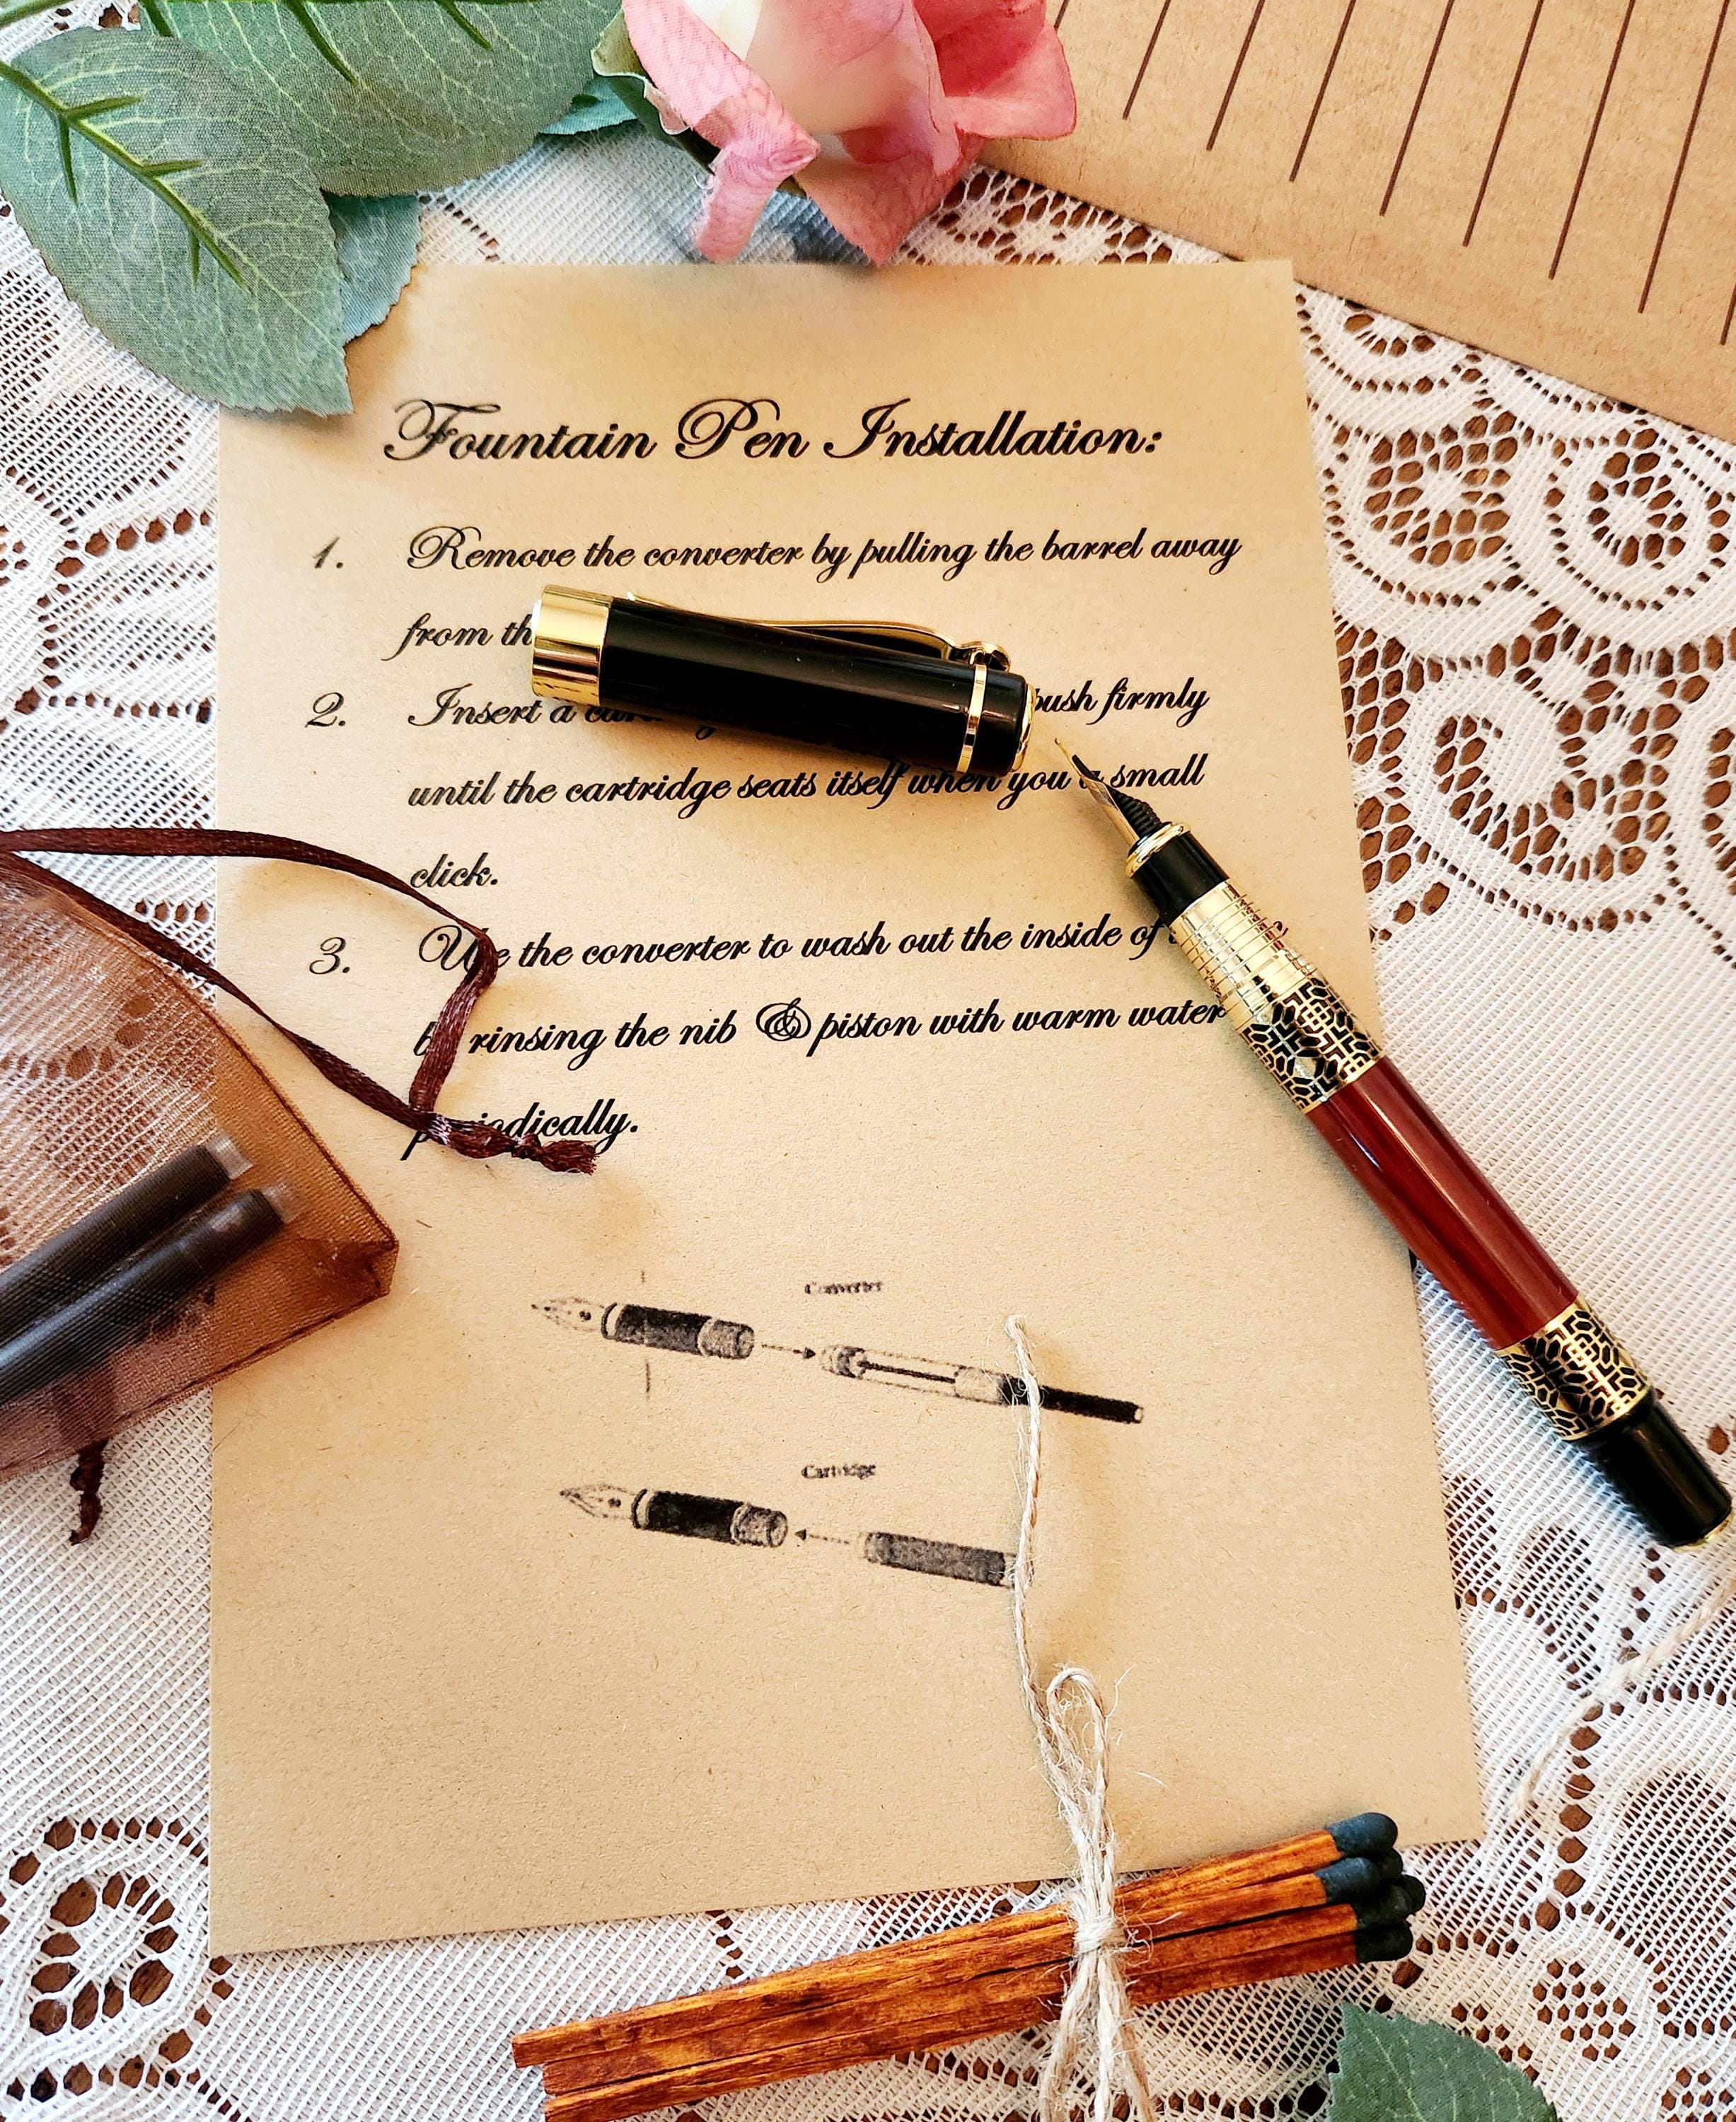 Fountain Pen Installation:
1. Remove the converter by pulling the barrel away
from
2. Insert a push firmly
until the cartridge seats itself when you a small
click.
3. Use the converter to wash out the inside of
rinsing the nib & piston with warm water
periodically.
Converter
Cartridge